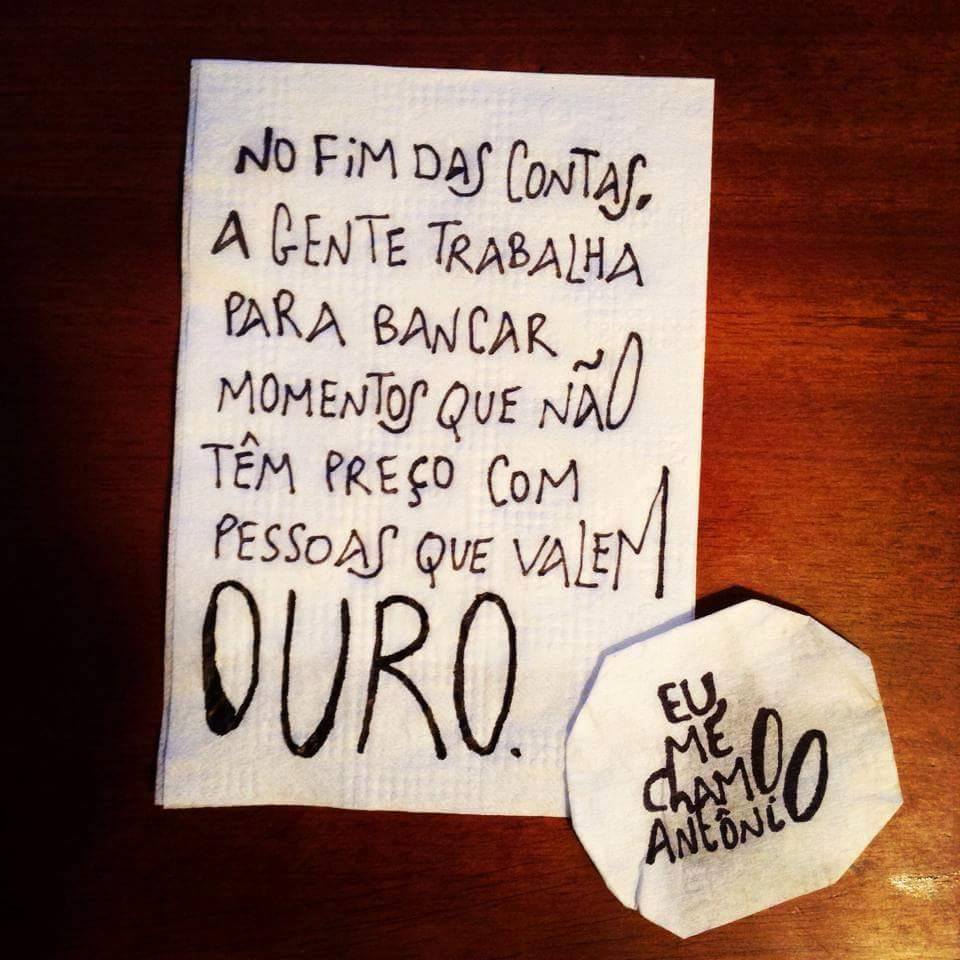 NO FiM DAS CONTAS,
A GENTE TRABALHA
PARA BANCAR
MOMENTOS QUE NÃO
TÊM PREÇO COM
PESSOAS QUE VALEM
OURO.
EU
ME
ChAMO
ANTÔNiO